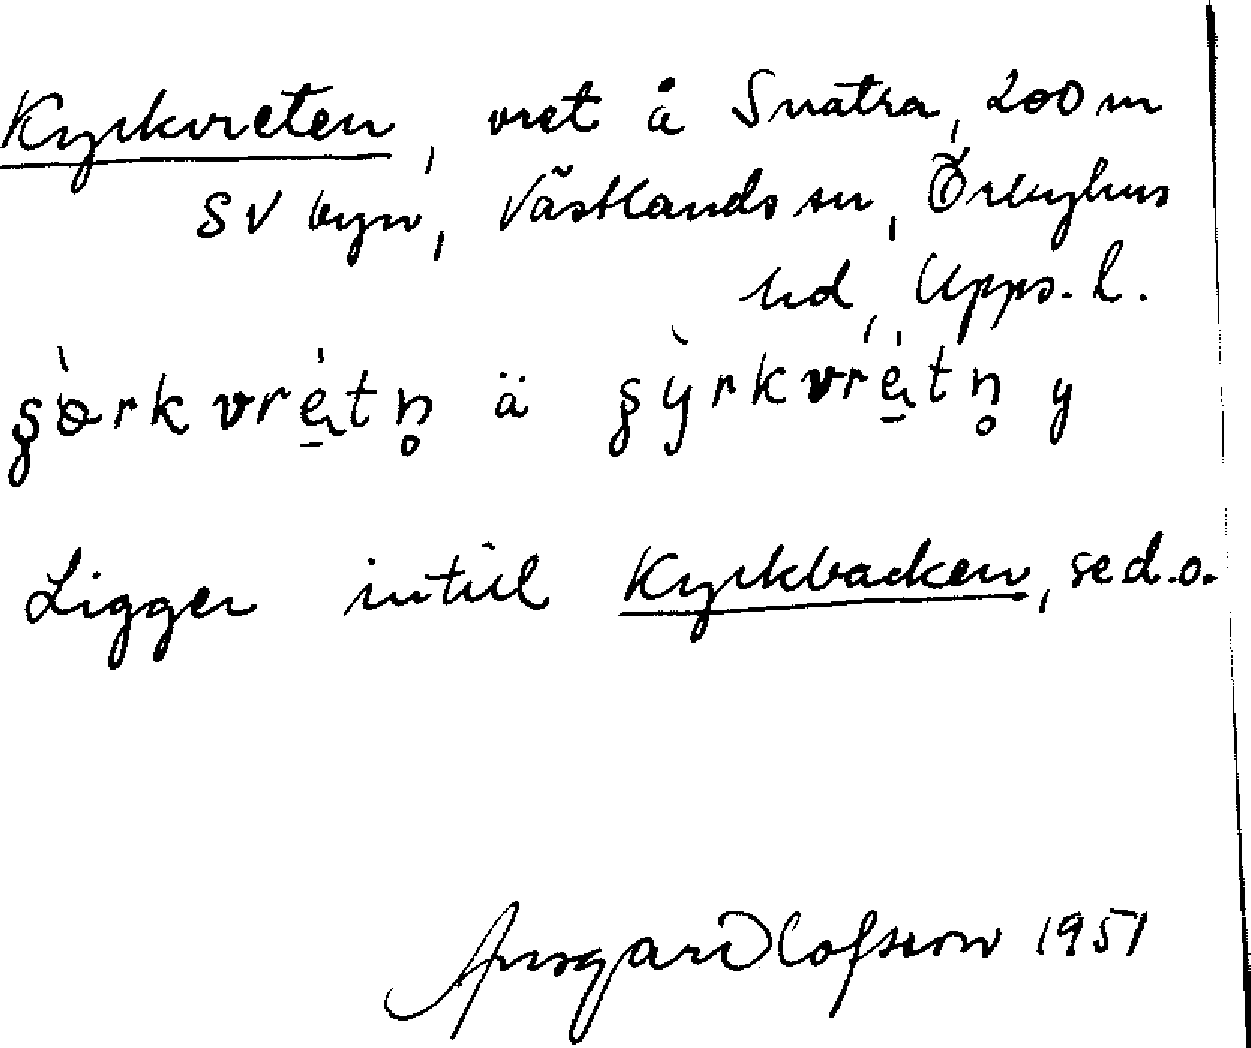 Kyrkvreten, vret å Snatra, 200 m
SV byn, Västlands sn, Örbyhus
hd, Upps. l.
ä y
Ligger intill Kyrkbacken, se d.o.
Ansgar Olofsson 1951